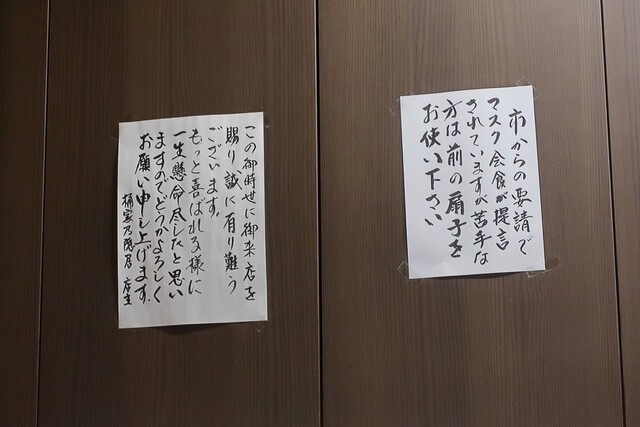 市からの要請で
マスク会食が提言
されていますが苦手な
方は前の扇子を
お使い下さい
この御時世に御来店を
賜り誠に有り難う
ございます。
もっと喜ばれる様に
一生懸命尽したと思い
ますのでどうかよろしく
お願い申し上げます。
店主